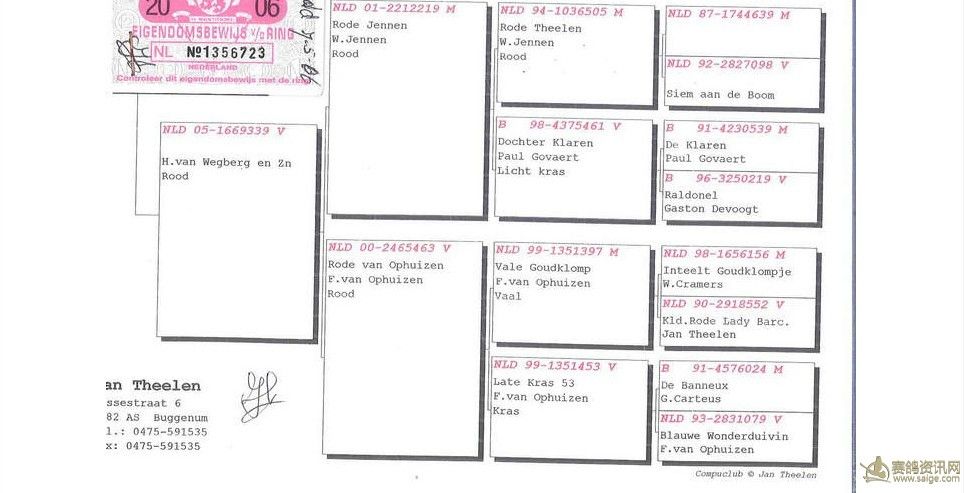 20 06
EIGENDOMSBEWIJS v/d RING
NL №1356723
NEDERLAND
Controleer dit eigendomsbewijs met de ring
NLD 05-1669339 V
H.van Wegberg en Zn
Rood
NLD 01-2212219 M
Rode Jennen
W.Jennen
Rood
NLD 00-2465463 V
Rode van Ophuizen
F.van Ophuizen
Rood
NLD 94-1036505 M
Rode Theelen
W.Jennen
Rood
B 98-4375461 V
Dochter Klaren
Paul Govaert
Licht kras
NLD 99-1351397 M
Vale Goudklomp
F.van Ophuizen
Vaal
NLD 99-1351453 V
Late Kras 53
F.van Ophuizen
Kras
NLD 87-1744639 M
NLD 92-2827098 V
Siem aan de Boom
B 91-4230539 M
De Klaren
Paul Govaert
B 96-3250219 V
Raldonel
Gaston Devoogt
NLD 98-1656156 M
Inteelt Goudklompje
W.Cramers
NLD 90-2918552 V
Kld.Rode Lady Barc.
Jan Theelen
B 91-4576024 M
De Banneux
G.Carteus
NLD 93-2831079 V
Blauwe Wonderduivin
F.van Ophuizen
an Theelen
ssestraat 6
82 AS Buggenum
l.: 0475-591535
x: 0475-591535
Compuclub © Jan Theelen
赛鸽资讯网
www.saige.com